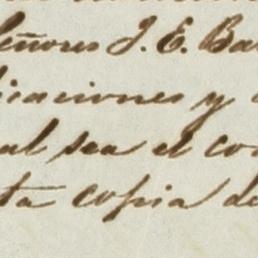 eñores J. E. Ba
icaciones y
al sea el co
ta copia de